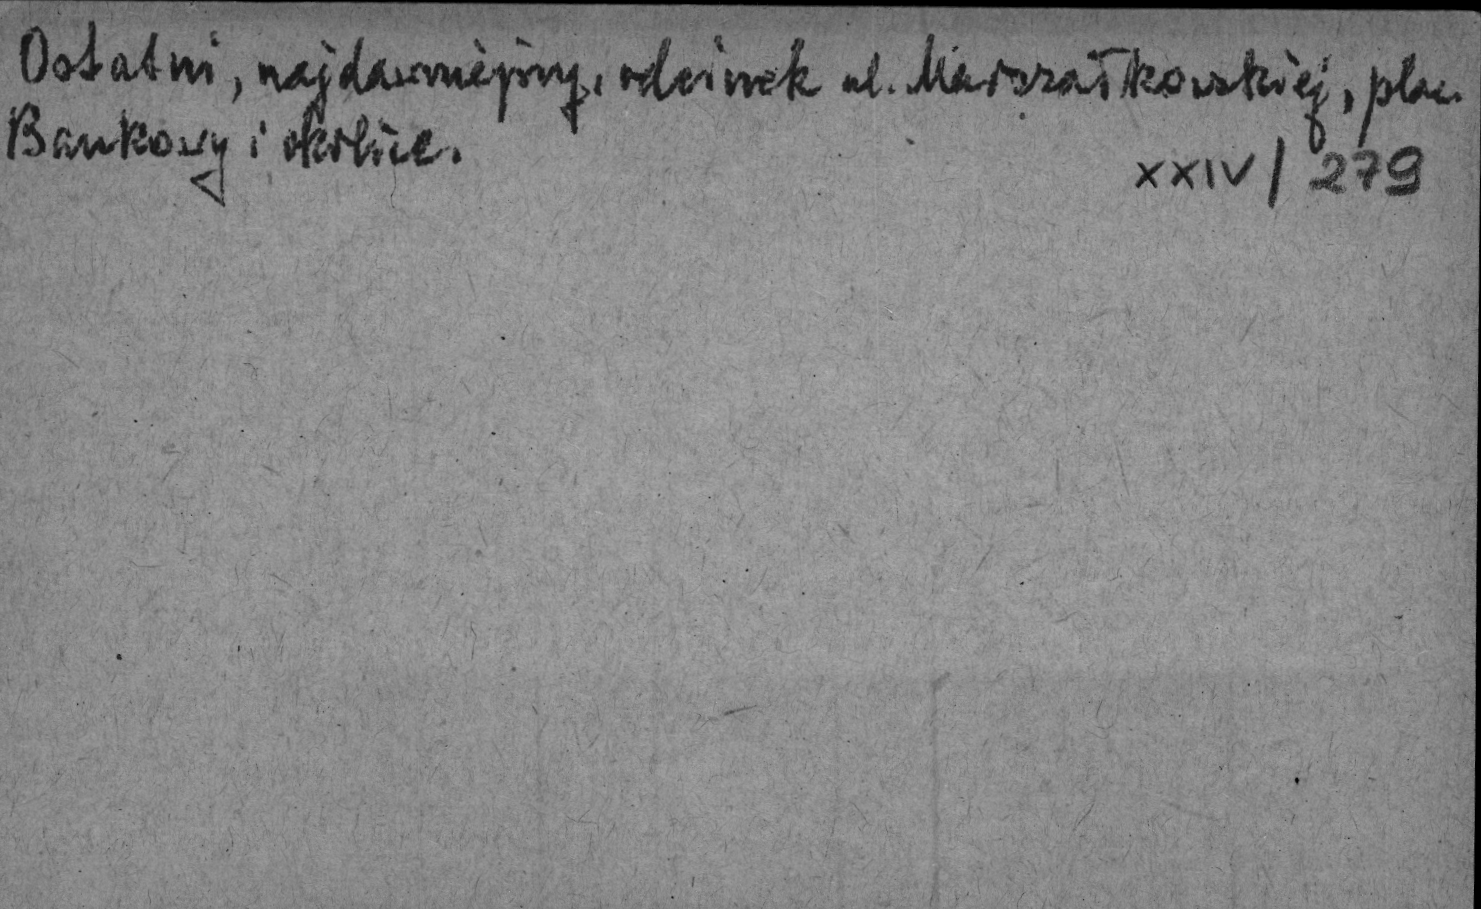 Ostatni, najdawniejszy, odcinek ul. Marszałkowskiej, plac
Bankowy i okolice.
XXIV / 279